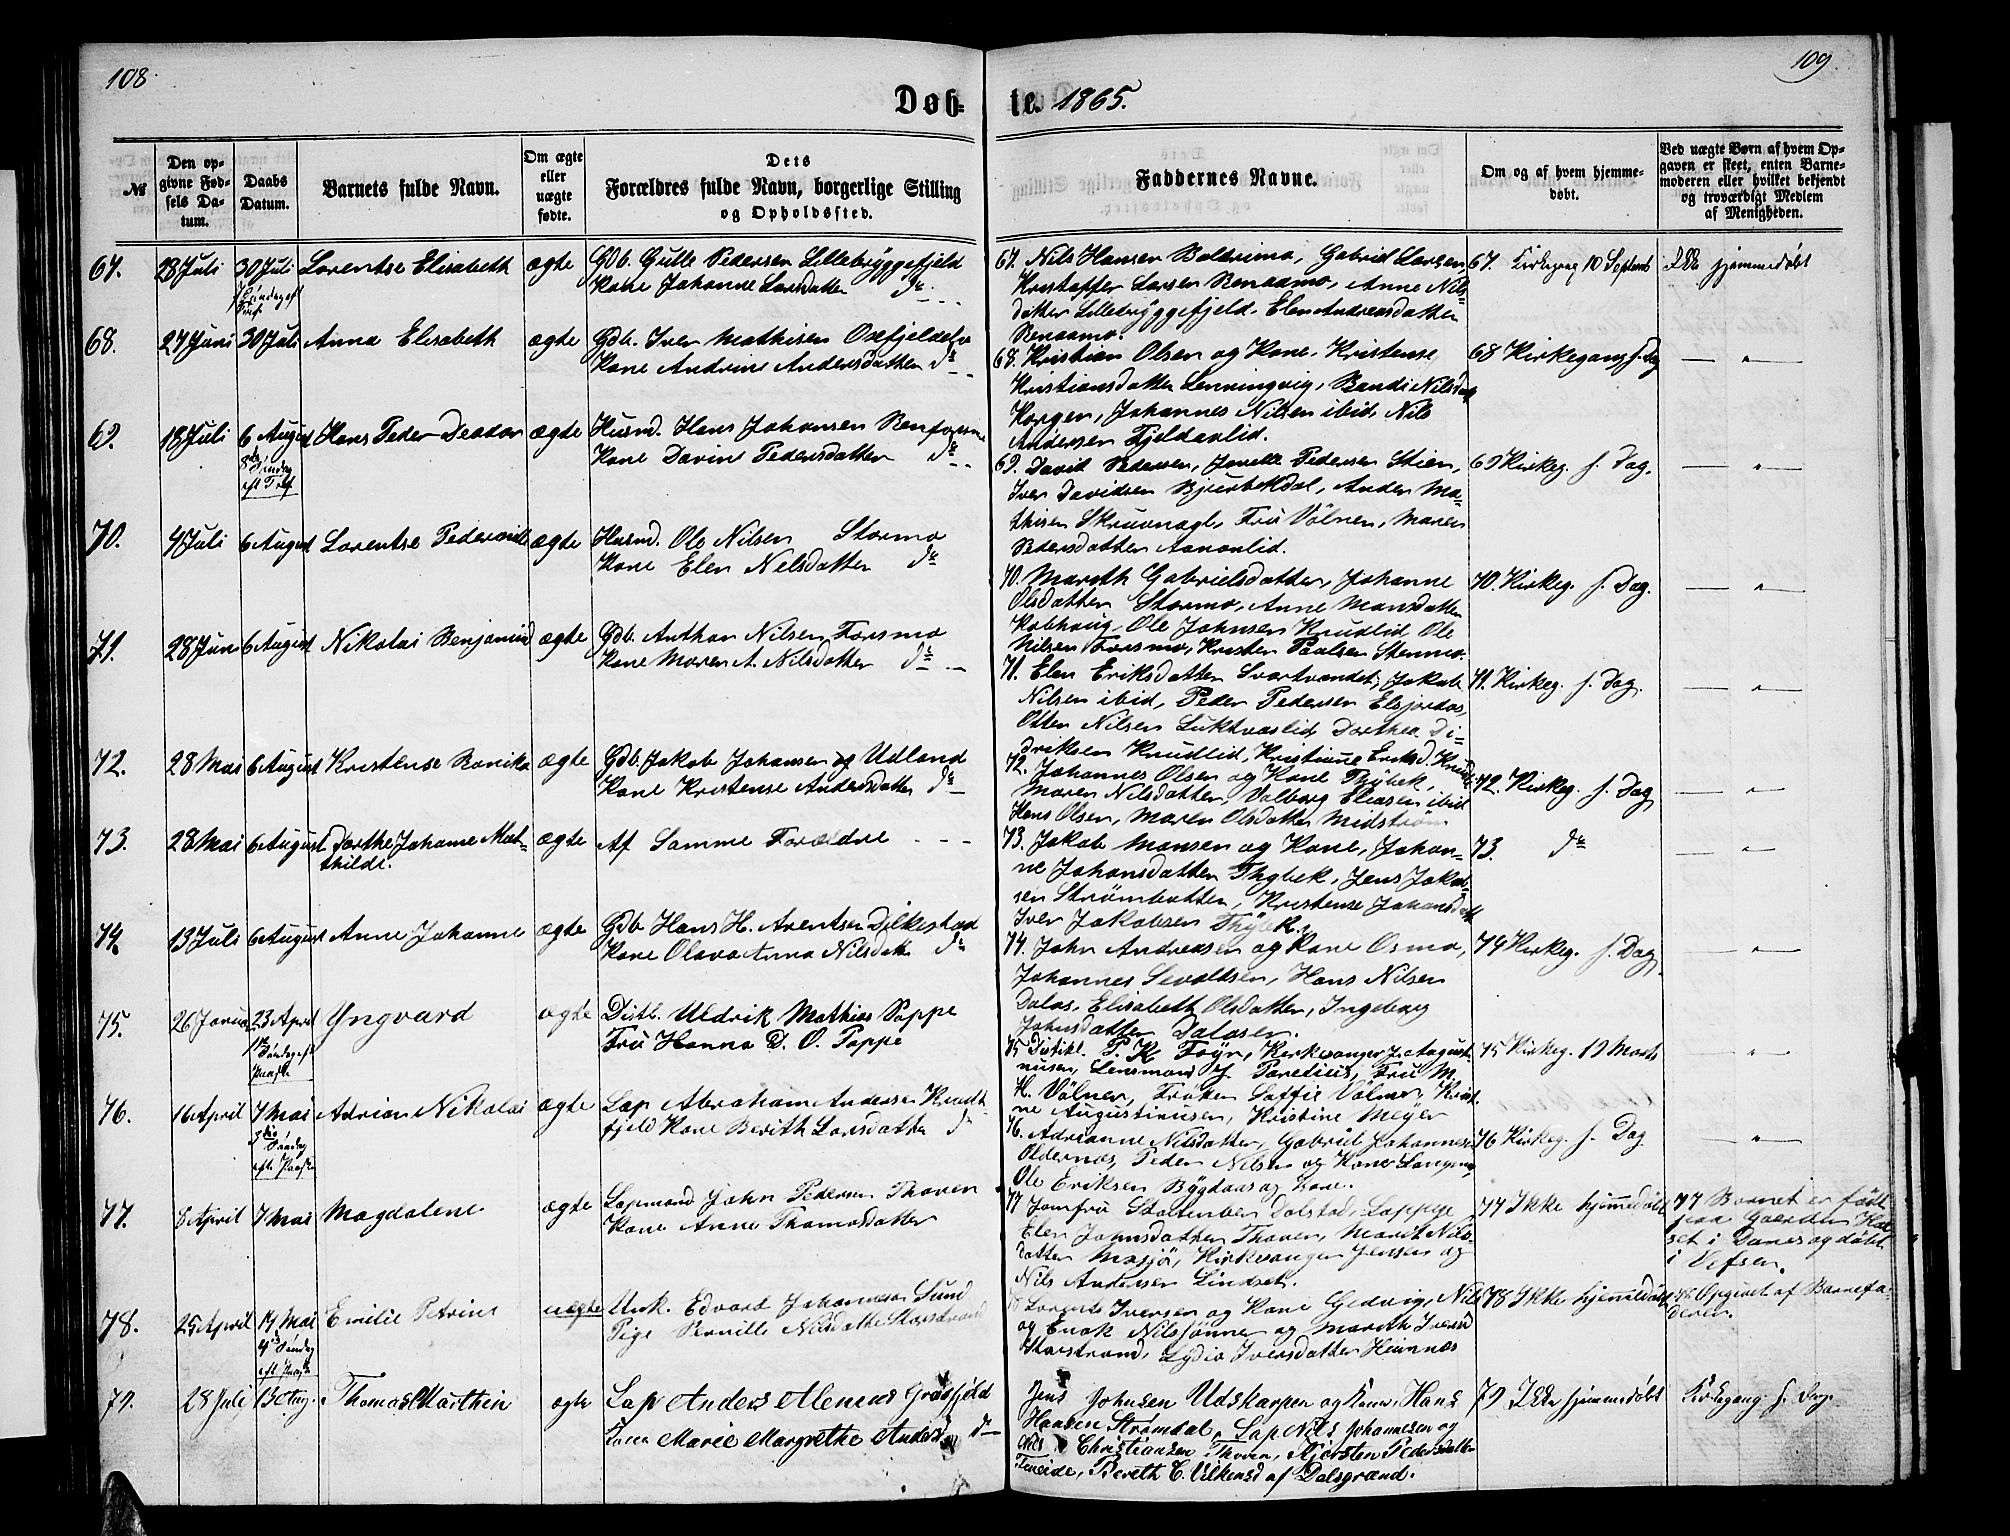 108.
109
Døb-
te. 1865.
№
Den op-
givne Fød-
sels Da-
tum.
Daabs
Datum.
Barnets fulde Navn.
Om ægte
eller
uægte
fødte.
Dets
Forældres fulde Navn, borgerlige Stilling
og Opholdssted.
Faddernes Navne.
Om og af hvem hjemme-
døbt.
Ved uægte Børn af hvem Op-
gaven er skeet, enten Barne-
moderen eller hvilket bekjendt
og troværdigt Medlem
af Menigheden.
67. 28 Juli 30 Juli Lorentse Elisabeth ægte Gdb. Gulle Pedersen Lillebryggefjeld
Kone Johanne Larsdatter do
67. Nils Hansen Baderimo, Gabriel Larsen
Kristoffer Larsen Renaamo, Anne Nils-
datter Lillebryggefjeld, Elen Andreasdatter
Renaamo.
67. Kirkegang 10 September Ikke hjemmedøbt
68. 27 Juni 30 Juli Anna Elisabeth ægte Gdb. Iver Mathisen Oxfjeldelv
Kone Andrine Andersdatter do
68. Kristian Olsen og Kone, Kristense
Kristiansdatter Lenningvig, Bendi Nilsdat
Korgen, Johannes Nilsen ibid, Nils
Andersen Fjeldavlid.
68 Kirkegang s. Dag — " —
69. 18 Juli 6 August Hans Peder Deodor ægte Husmd. Hans Johansen Renfosmo
8de Søndag
eft Tref
Kone Davine Pedersdatter do
69. David Pedersen, Jonette Pedersen Stien,
Iver Davidsen Bjurbekdal, Anders Ma-
thisen Skruvnagl, Fru Völner, Maren
Pedersdatter Aanonlid.
69 Kirkeg. s. Dag. — " —
70. 4 Juli 6 August Lorentse Pedernille ægte Husmd. Ole Nilsen Stormo
Kone Elen Nelsdatter do
70. Mareth Gabrielsdatter, Johanne
Olsdatter Stormo, Anne Mansdatter
Kobhaug, Ole Johnsen Knudlid, Ole
Nilsen Forsmo, Kristen Paulsen Stenmo.
70. Kirkeg. s. Dag. — " —
71. 28 Juni 6 August Nikolai Benjamin ægte Gdb. Anthon Nilsen Forsmo
Kone Maren A. Nilsdatter do
71. Elen Eriksdatter Svartvandet, Jakob
Nilsen ibid, Peder Pedersen Elsjordas,
Otter Nilsen Luktvaslid Dorthea Di-
driksen Knudlid, Kristiane Eriksd. Knudl
71. Kirkeg. s. Dag. — " —
72. 28 Mai 6 August Kristense Ronika ægte Gdb. Jakob Johansen og Udland
Kone Kristense Andersdatter do
72. Johannes Olsen og Kone Thybek,
Maren Nilsdatter, Valborg Eliasen ibid
Hans Olsen, Maren Olsdatter Midstrøm
72. Kirkeg. s. Dag — " —
73. 28 Mai 6 August Dorthe Johanne Mat-
thilde.
ægte Af Samme Forældre
73. Jakob Monsen og Kone, Johan-
ne Johansdatter Thybek, Jens Jakob-
sen Strømbotten, Kristense Johansdatt
Iver Jakobsen Thybek.
73. do — " —
74. 13 Juli 6 August Anne Johanne ægte Gdb Hans H. Arentsen Dilkestad
Kone Olava Anna Nilsdatt do
74. John Andreasen og Kone Osmo,
Johannes Sivaltsen, Hans Nilsen
Dalos, Elisabeth Olsdatter, Ingeborg
Johnsdatter Dalosen.
74 Kirkeg. s. Dag. — " —
75. 26 Januar 23 April Yngvard ægte Distl. Uldrik Mathias Poppe
1ste Søndag eft
Paaske
Fru Hanna D. O. Poppe
75 Distikl. P. K. Foyn, Kirkesanger J. August
nusen, Lensmand J. Paretius, Fru M.
H. Völner, Frøken Saffie Völner, Krist
ne Augustinusen, Kristine Meyer
75 Kirkeg. 19 Marts — " —
76. 16 April 7 Mai Adrian Nikolai ægte Lap Abraham Andersen Kruth-
3die Søndag
eft. Paaske
fjeld Kone Berith Larsdatter do
76. Adrianne Nilsdatter, Gabriel Johannesen
Oldernæs, Peder Nilsen og Kone
Ole Eriksen Bygdaas og Kone.
76 Kirkeg. s. Dag. — " —
77. 8 April 7 Mai Magdalene ægte Lapmand John Pedersen Thoven
Kone Anne Thomasdatter
77 Jomfru Stoltenber Dolstad, Lappige
Elen Johnsdatter Thoven, Marit Nils-
datter Masjø, Kirkesanger Jensen og
Nils Andersen Lindset.
77 Ikke hjemedøbt 77 Barnet er født
paa Gaarden
set i Danes og døbt
i Vefsen.
78. 25 April 14 Mai Emilie Petrine uægte Unk. Edvard Johannesen Sund
4de Søndag
eft Paaske
Pige Pernille Nilsdatter Storstrand
78 Lorents Iversen og Kone Gedvig, Nils
og Enok Nilssønner og Mareth Iversd
Storstrand, Lydia Iversdatter Heimnæs
78 Ikke hjemedøbt 78. Opgivet af Barnefa-
deren.
79. 28 Juli 13 Aug. Thomas Marthin ægte Lap Anders Alenius Graafjeld
Kone Marie Margrethe Andersd do
Jens Johnsen Udskarpen og Kone, Hans
Hansen Strømdal, Lap Nils Johannesen og
Nils Christiansen Thoven, Kjersten Pedersdatter
Fineide, Bereth C. Vilkensd af Dalsgrænd.
79 Ikke hjemmedøbt Kirkegang s. Dag.